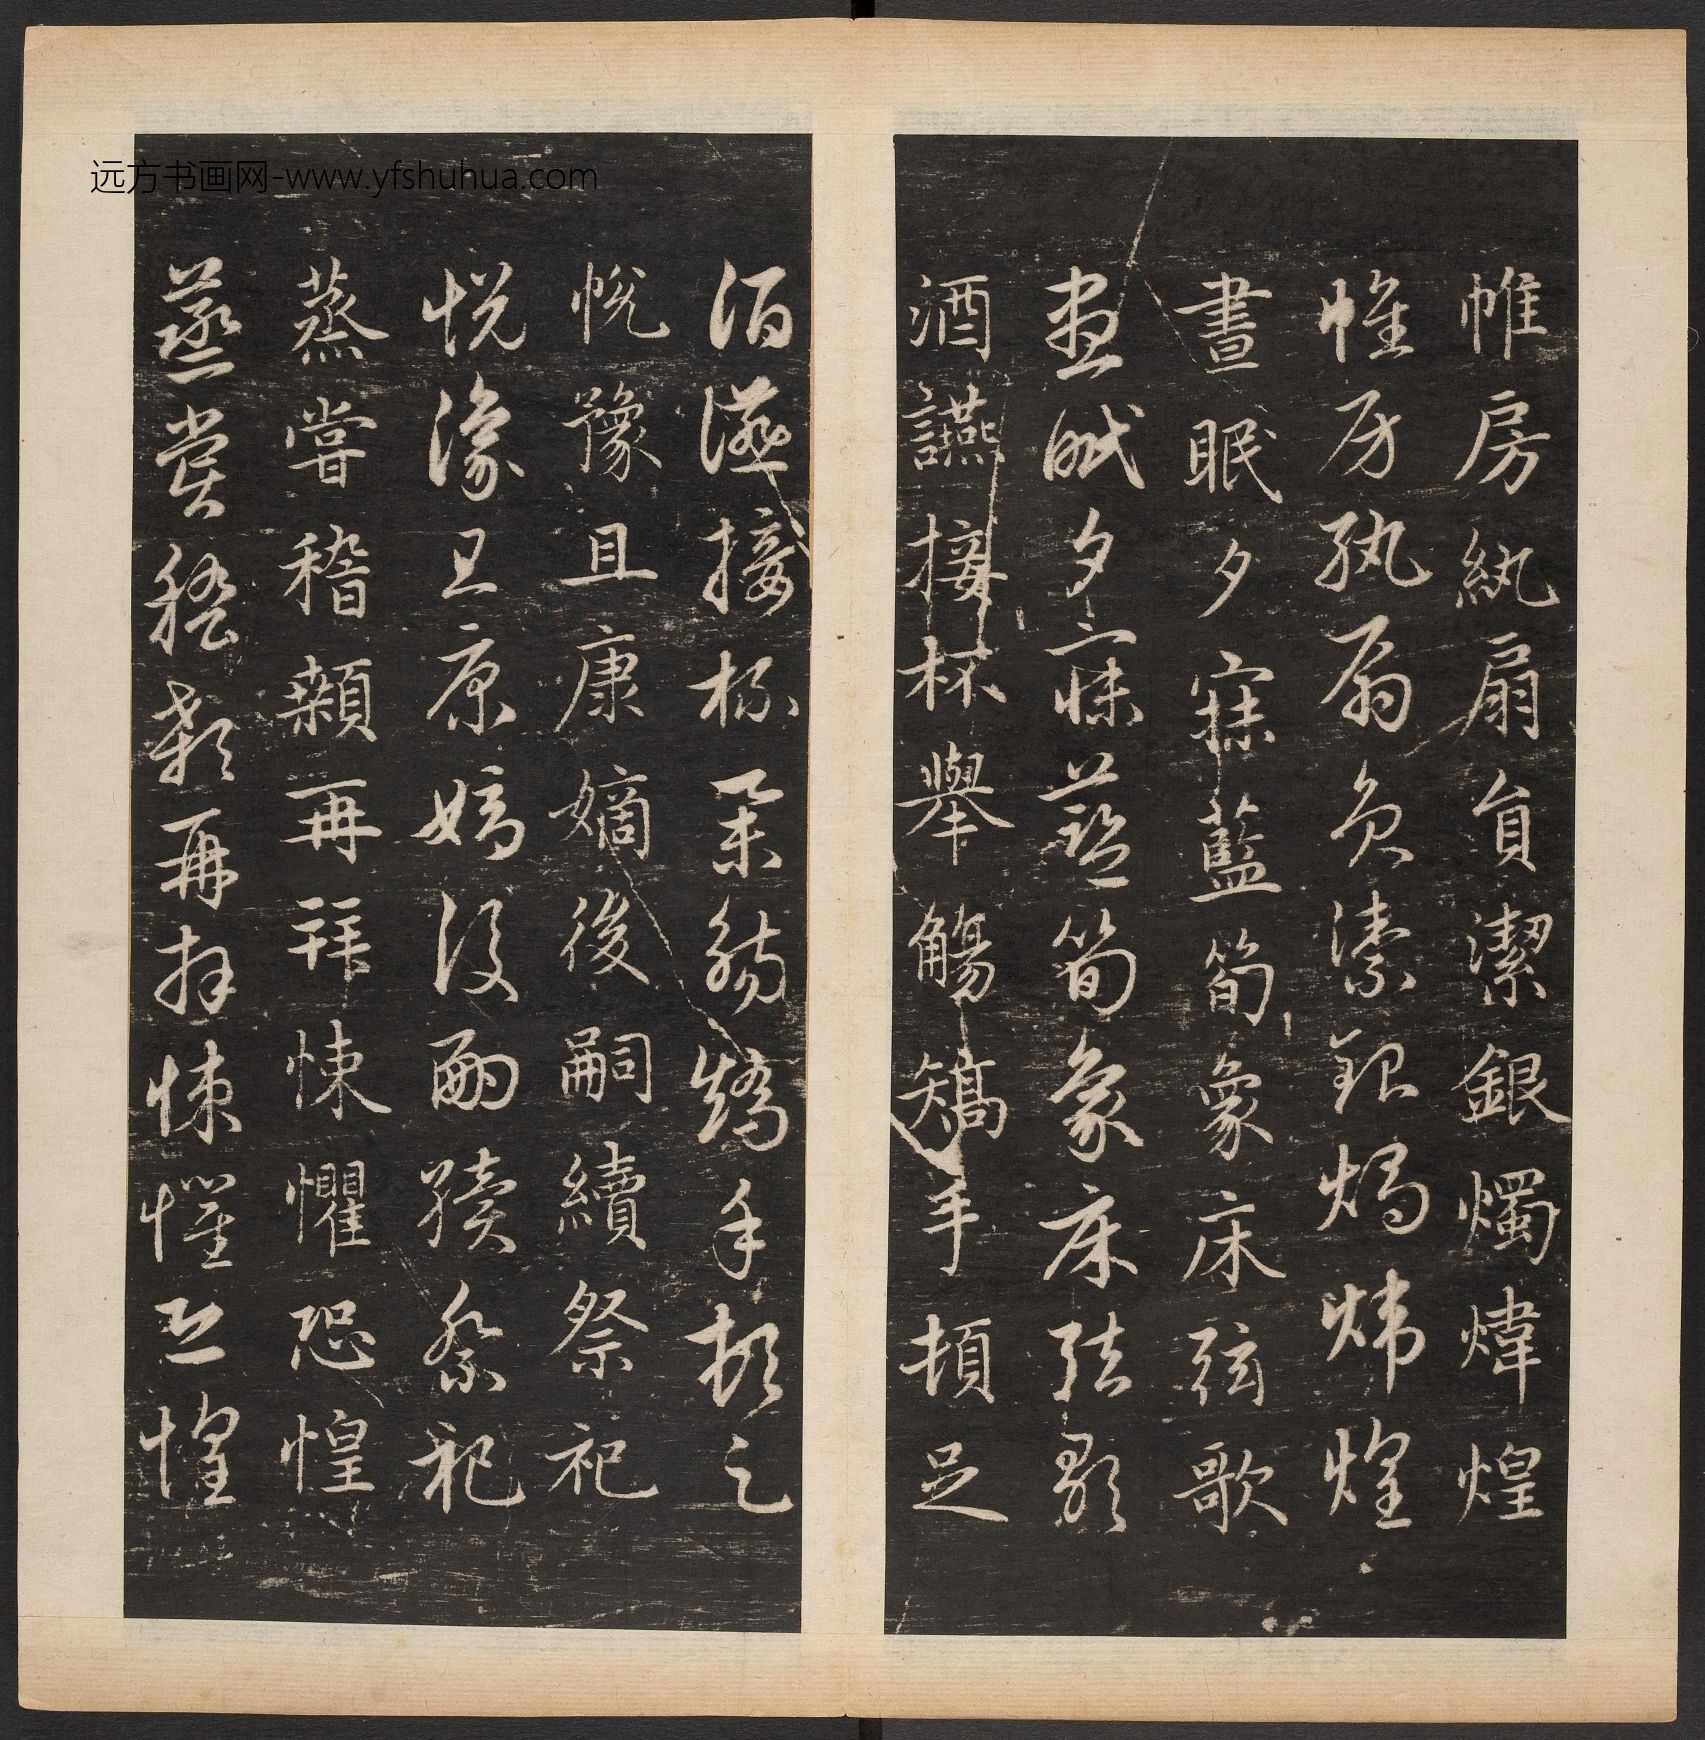 远方书画网-www.yfshuhua.com
帷房紈扇員潔銀燭煒煌
帷房紈扇員潔銀燭煒煌
晝眠夕寐藍筍象床弦歌
晝眠夕寐藍筍象床弦歌
酒讌接杯舉觴矯手頓足
酒讌接杯舉觴矯手頓足
悅豫且康嫡後嗣續祭祀
悅豫且康嫡後嗣續祭祀
蒸嘗稽顙再拜悚懼恐惶
蒸嘗稽顙再拜悚懼恐惶